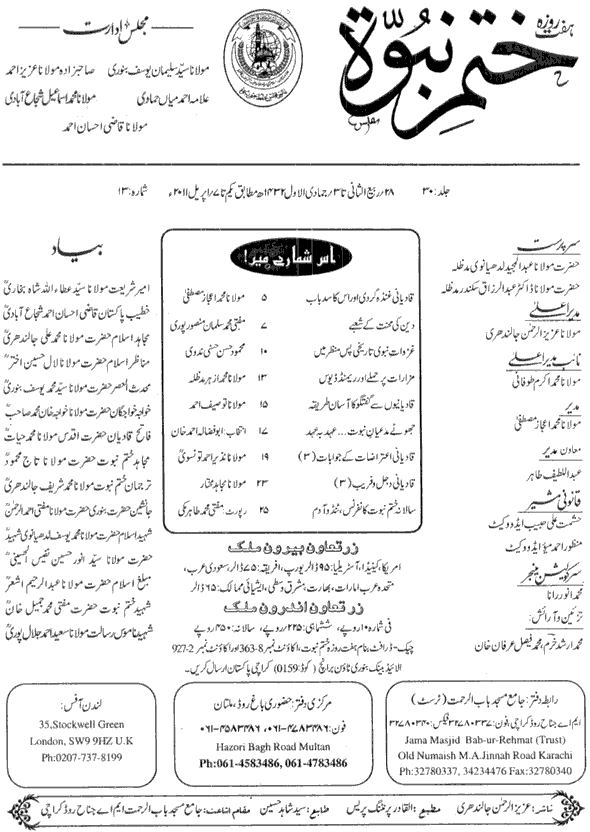 ہفت روزہ
ختم نبوۃ
مجلس ادارت
مولانا سید سلیمان یوسف بنوری صاحبزادہ مولانا عزیز احمد
علامہ احمد میاں حمادی مولانا محمد اسماعیل شجاع آبادی
مولانا قاضی احسان احمد
جلد: ۳۰ ۲۸/ربیع الثانی تا ۳/جمادی الاول ۱۴۳۲ھ مطابق یکم تا ۷/اپریل ۲۰۱۱ء شمارہ: ۱۳
سرپرست
حضرت مولانا عبدالمجید لدھیانوی مدظلہ
حضرت مولانا ڈاکٹر عبدالرزاق سکندر مدظلہ
مدیر اعلیٰ
مولانا عزیز الرحمٰن جالندھری
نائب مدیر اعلیٰ
مولانا محمد اکرم طوفانی
مدیر
مولانا محمد اعجاز مصطفیٰ
معاون مدیر
عبداللطیف طاہر
قانونی مشیر
حشمت علی حبیب ایڈووکیٹ
منظور احمد میؤ ایڈووکیٹ
سرکولیشن منیجر
محمد انور رانا
تزئین و آرائش:
محمد ارشد خرم، محمد فیصل عرفان خان
اس شمارے میں!
قادیانی غنڈہ گردی اور اس کا سدباب ۵ مولانا محمد اعجاز مصطفیٰ
دین کی محنت کے شعبے ۷ مفتی محمد سلمان منصور پوری
غزوات نبوی تاریخی پس منظر میں ۱۰ محمود حسن حسنی ندوی
مزارات پر حملے اور ریمنڈ ڈیوس ۱۳ مولانا محمد ازہر مدظلہ
قادیانیوں سے گفتگو کا آسان طریقہ ۱۵ مولانا توصیف احمد
جھوٹے مدعیان نبوت... عہد بہ عہد ۱۷ انتخاب: ابو فضالہ احمد خان
قادیانی اعتراضات کے جوابات (۳) ۱۹ مولانا نذیر احمد تونسوی
قادیانی دجل و فریب (۳) ۲۳ مولانا مجاہد مختار
سالانہ ختم نبوت کانفرنس، ٹنڈو آدم ۲۵ رپورٹ: مفتی محمد طاہر مکی
بیاد
امیر شریعت مولانا سید عطاء اللہ شاہ بخاریؒ
خطیب پاکستان قاضی احسان احمد شجاع آبادیؒ
مجاہد اسلام حضرت مولانا محمد علی جالندھریؒ
مناظر اسلام حضرت مولانا لال حسین اخترؒ
محدث العصر حضرت مولانا سید محمد یوسف بنوریؒ
خواجہ خواجگان حضرت مولانا خواجہ خان محمد صاحبؒ
فاتح قادیان حضرت اقدس مولانا محمد حیاتؒ
مجاہد ختم نبوت حضرت مولانا تاج محمودؒ
ترجمان ختم نبوت مولانا محمد شریف جالندھریؒ
جانشین حضرت بنوری حضرت مولانا مفتی احمد الرحمٰنؒ
شہید اسلام حضرت مولانا محمد یوسف لدھیانوی شہیدؒ
حضرت مولانا سید انور حسین نفیس الحسینیؒ
مبلغ اسلام حضرت مولانا عبدالرحیم اشعرؒ
شہید ختم نبوت حضرت مفتی محمد جمیل خانؒ
شہید ناموس رسالت مولانا سعید احمد جلال پوریؒ
زر تعاون بیرون ملک
امریکا، کینیڈا، آسٹریلیا: ۹۵ ڈالر یورپ، افریقہ: ۷۵ ڈالر سعودی عرب،
متحدہ عرب امارات، بھارت، مشرق وسطی، ایشیائی ممالک: ۶۵ ڈالر
زر تعاون اندرون ملک
فی شمارہ ۱۰ روپے، ششماہی: ۲۲۵ روپے، سالانہ: ۴۵۰ روپے
چیک-ڈرافٹ بنام ہفت روزہ ختم نبوت، اکاؤنٹ نمبر 8-363 اور اکاؤنٹ نمبر 2-927
الائیڈ بینک بنوری ٹاؤن برانچ (کوڈ: 0159) کراچی پاکستان ارسال کریں۔
رابطہ دفتر: جامع مسجد باب الرحمت (ٹرسٹ)
ایم اے جناح روڈ کراچی فون: ۳۲۷۸۰۳۳۷ فیکس: ۳۲۷۸۰۳۴۰
Jama Masjid Bab-ur-Rehmat (Trust)
Old Numaish M.A.Jinnah Road Karachi
Ph:32780337, 34234476 Fax:32780340
مرکزی دفتر: حضوری باغ روڈ، ملتان
فون: ۰۶۱-۴۷۸۳۴۸۶، ۰۶۱-۴۵۸۳۴۸۶
Hazori Bagh Road Multan
Ph:061-4583486, 061-4783486
لندن آفس:
35,Stockwell Green
London, SW9 9HZ U.K
Ph:0207-737-8199
ناشر: عزیز الرحمٰن جالندھری مطبع: القادر پرنٹنگ پریس طابع: سید شاہد حسین مقام اشاعت: جامع مسجد باب الرحمت ایم اے جناح روڈ کراچی